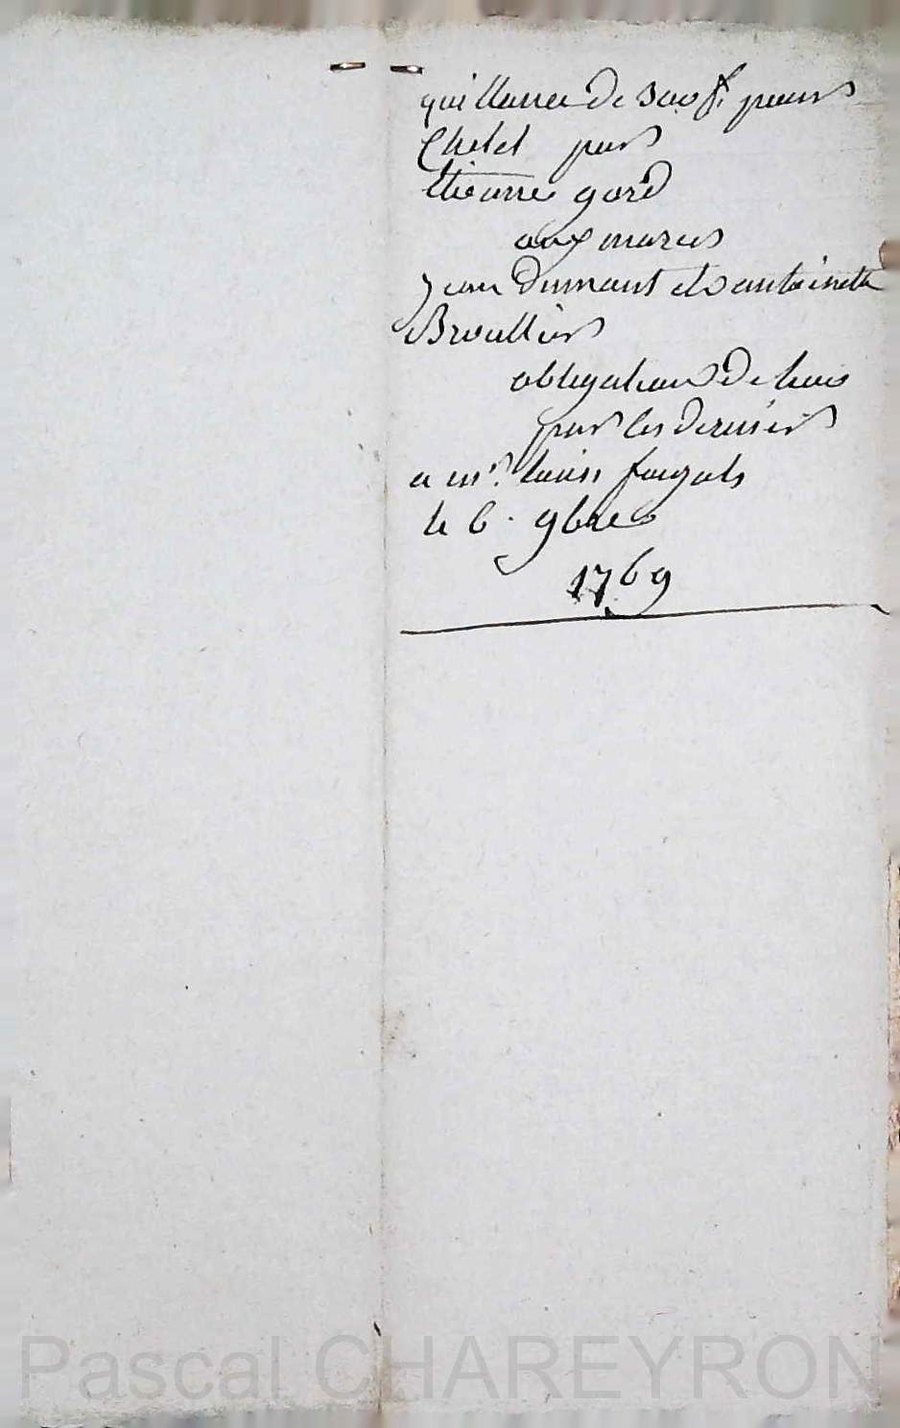 quittance de 300 ₶ pour
Chelet par
Etienne gord
aux maries
Jean Dumont et antoinette
Broullier
obligation de
par les derniers
a mr. louis
le 6. 9bre
1769
Pascal CHAREYRON